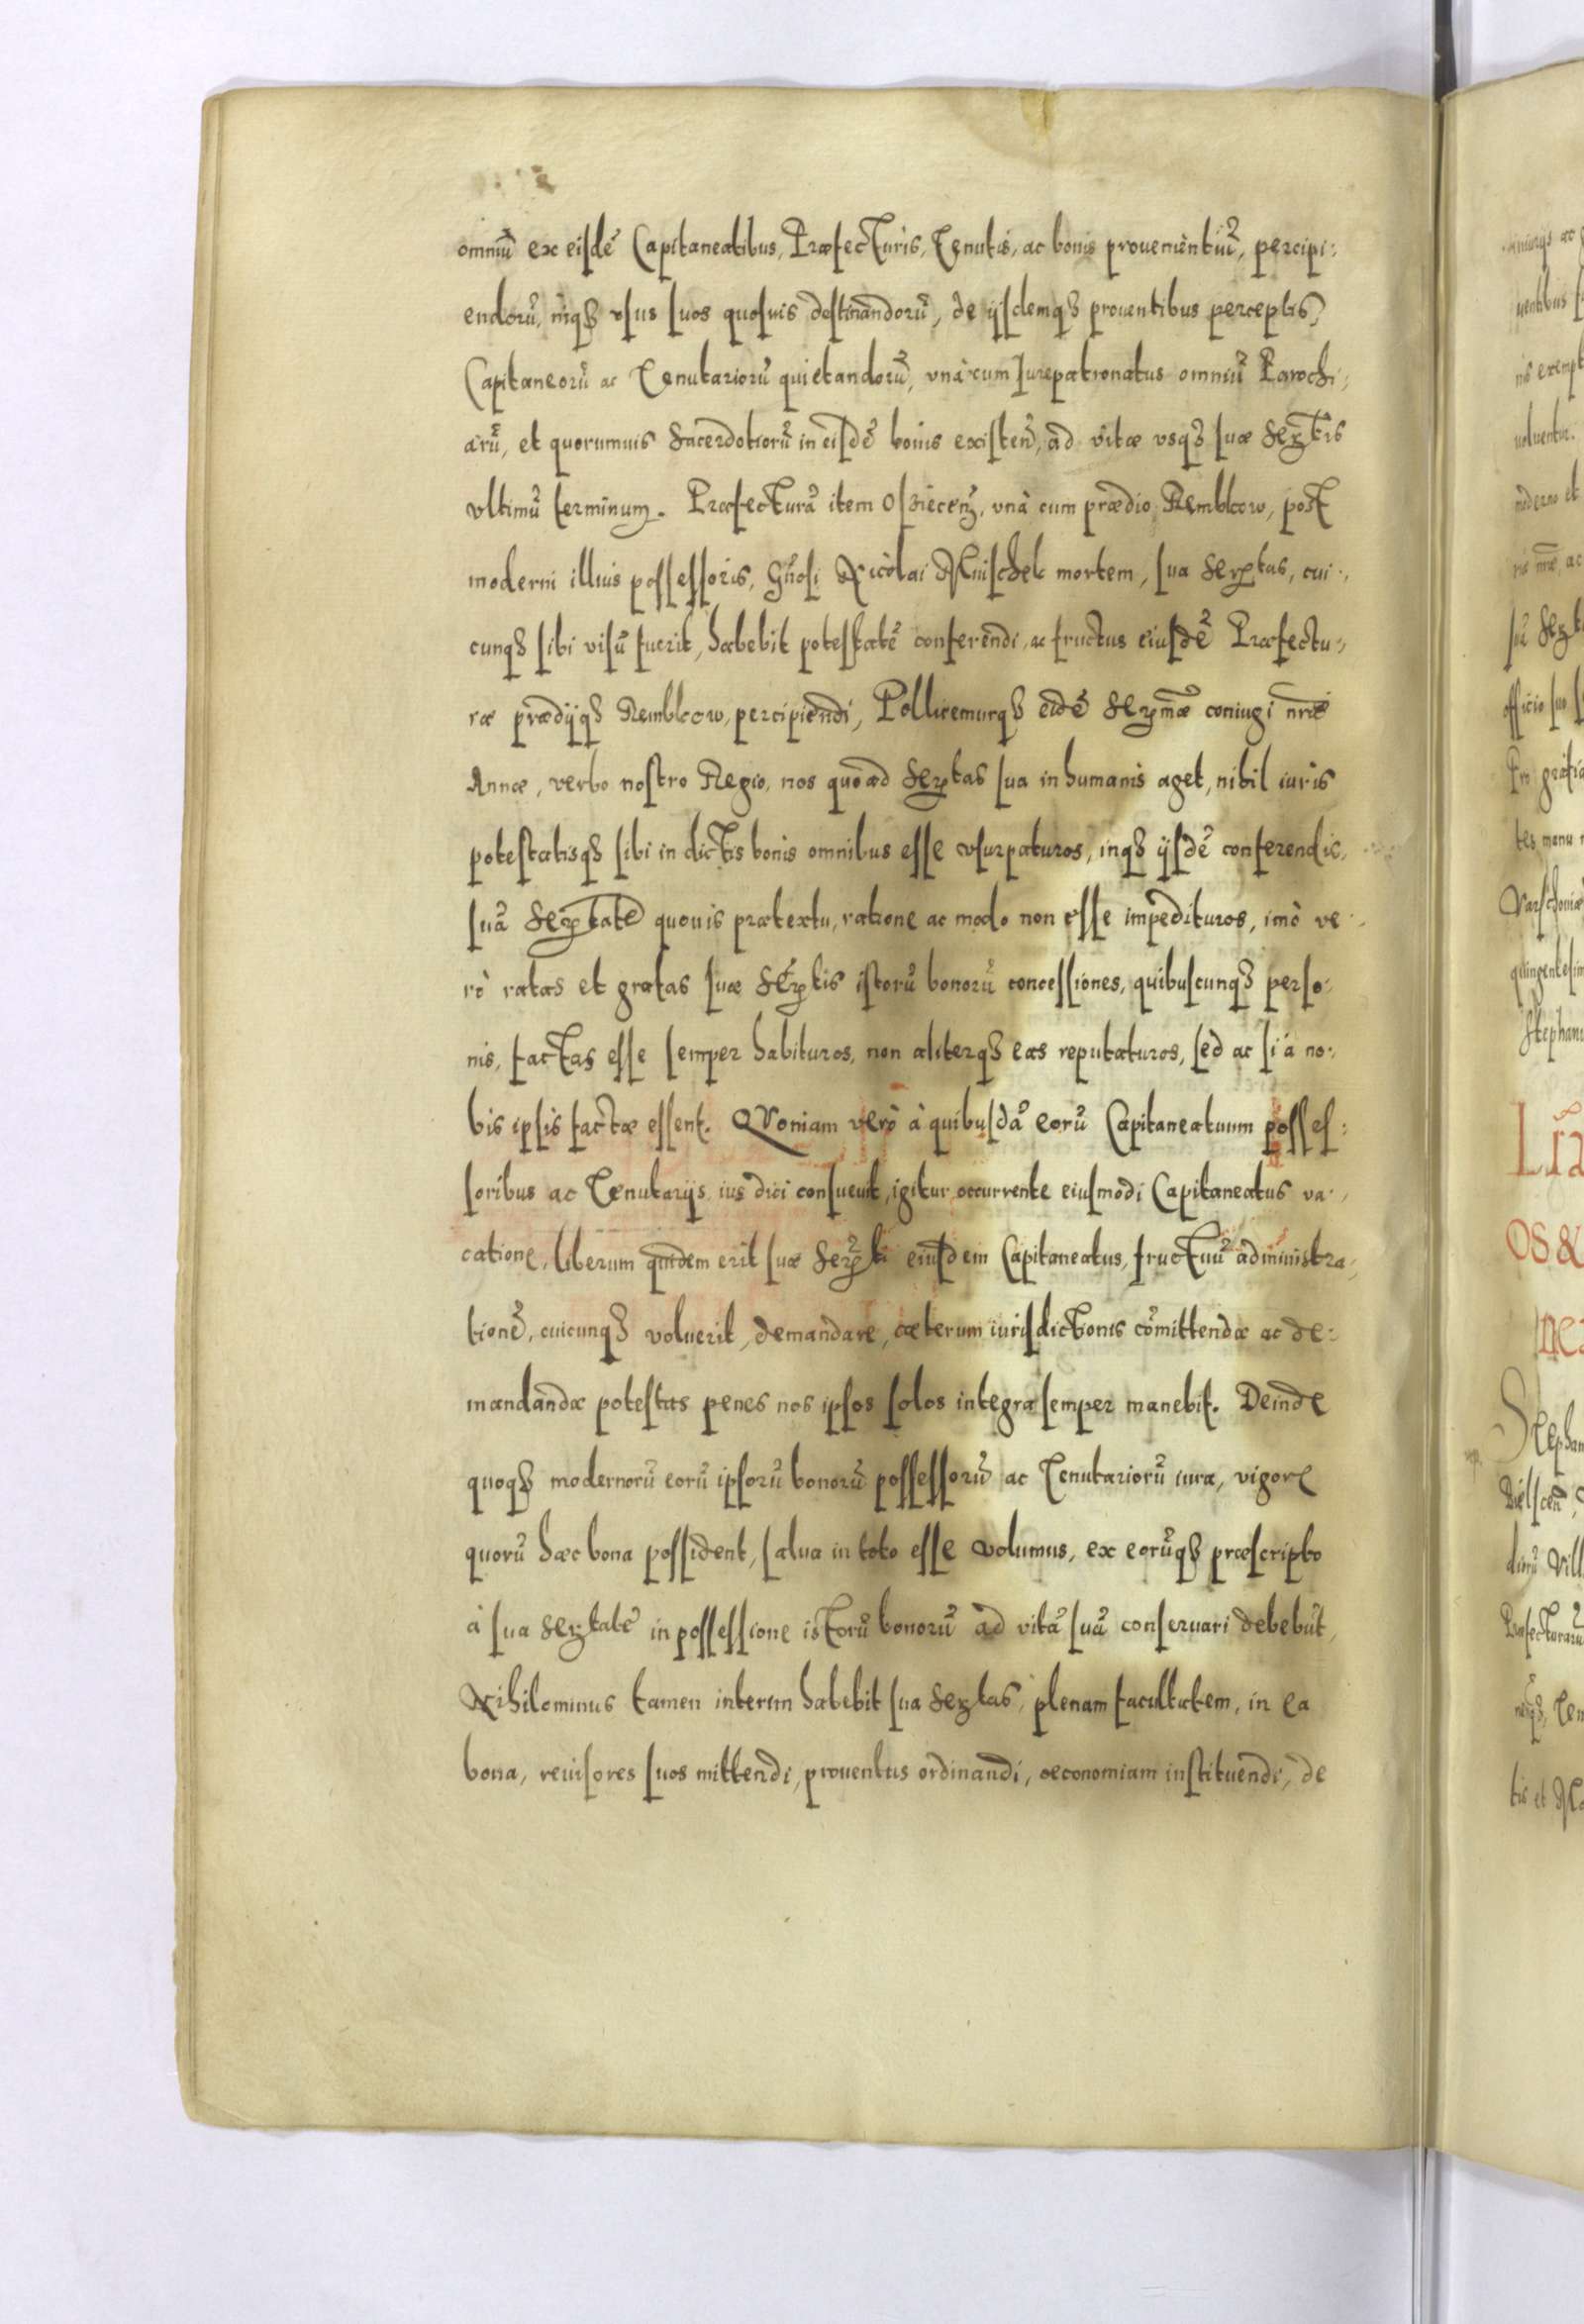 omniũ ex eisdẽ Capitaneatibus, Præfecturis, Tenutis, ac bonis prouenientiũ, percipi:
endorũ, inq3 vsus suos quosuis destinandorũ, de ijsdemq3 prouentibus perceptis,
Capitaneorũ ac Tenutariorũ quietandorũ, vnà cum Iurepatronatus omniũ Parochi:
arũ, et quorumuis Sacerdotiorũ in eisdẽ bonis existeñ, ad vitæ vsq3 suæ Sertis
vltimũ terminum. Præfecturã item Osiecen, vnà cum prædio Remblow, post
moderni illius possessoris, Gñosi Nicolai Mnischek mortem, sua Sertas, cui:
cunq3 sibi visũ fuerit, habebit potestatẽ conferendi, ac fructus eiusdẽ Præfectu:
ræ prædijq3 Remblow, percipiendi, Pollicemurq3 eidẽ Sermæ coniugi nrae
Annæ, verbo nostro Regio, nos quoad Sertas sua in humanis aget, nihil iuris
potestatisq3 sibi in dictis bonis omnibus esse vsurpaturos, inq3 ijsdẽ conferendis,
suã Sertatẽ quouis prætextu, ratione ac modo non esse impedituros, imò ve:
rò ratas et gratas suæ Sertis istorũ bonorũ concessiones, quibuscunq3 perso:
nis, factas esse semper habituros, non aliterq3 eas reputaturos, sed ac si a no:
bis ipsis factæ essent. QVoniam verò à quibusdã eorũ Capitaneatuum posses:
soribus ac Tenutarijs ius dici consueuit, igitur occurrente eiusmodi Capitaneatus va:
catione, liberum quidem erit suæ Serti eiusdem Capitaneatus, fructuũ administra:
tionẽ, cuicunq3 voluerit, demandare, cæterum iurisdictionis cõmittendæ ac de:
mandandæ potestas penes nos ipsos solos integra semper manebit. Deinde
quoq3 modernorũ eorũ ipsorũ bonorũ possessorũ ac Tenutariorũ iura, vigore
quorũ hæc bona possident, salua in toto esse volumus, ex eorũq3 præscripto
à sua Sertate in possessione istorũ bonorũ ad vitã suã conseruari debebũt,
Nihilominus tamen interim habebit sua Sertas, plenam facultatem, in ea
bona, reuisores suos mittendi, prouentus ordinandi, œconomiam instituendi, de